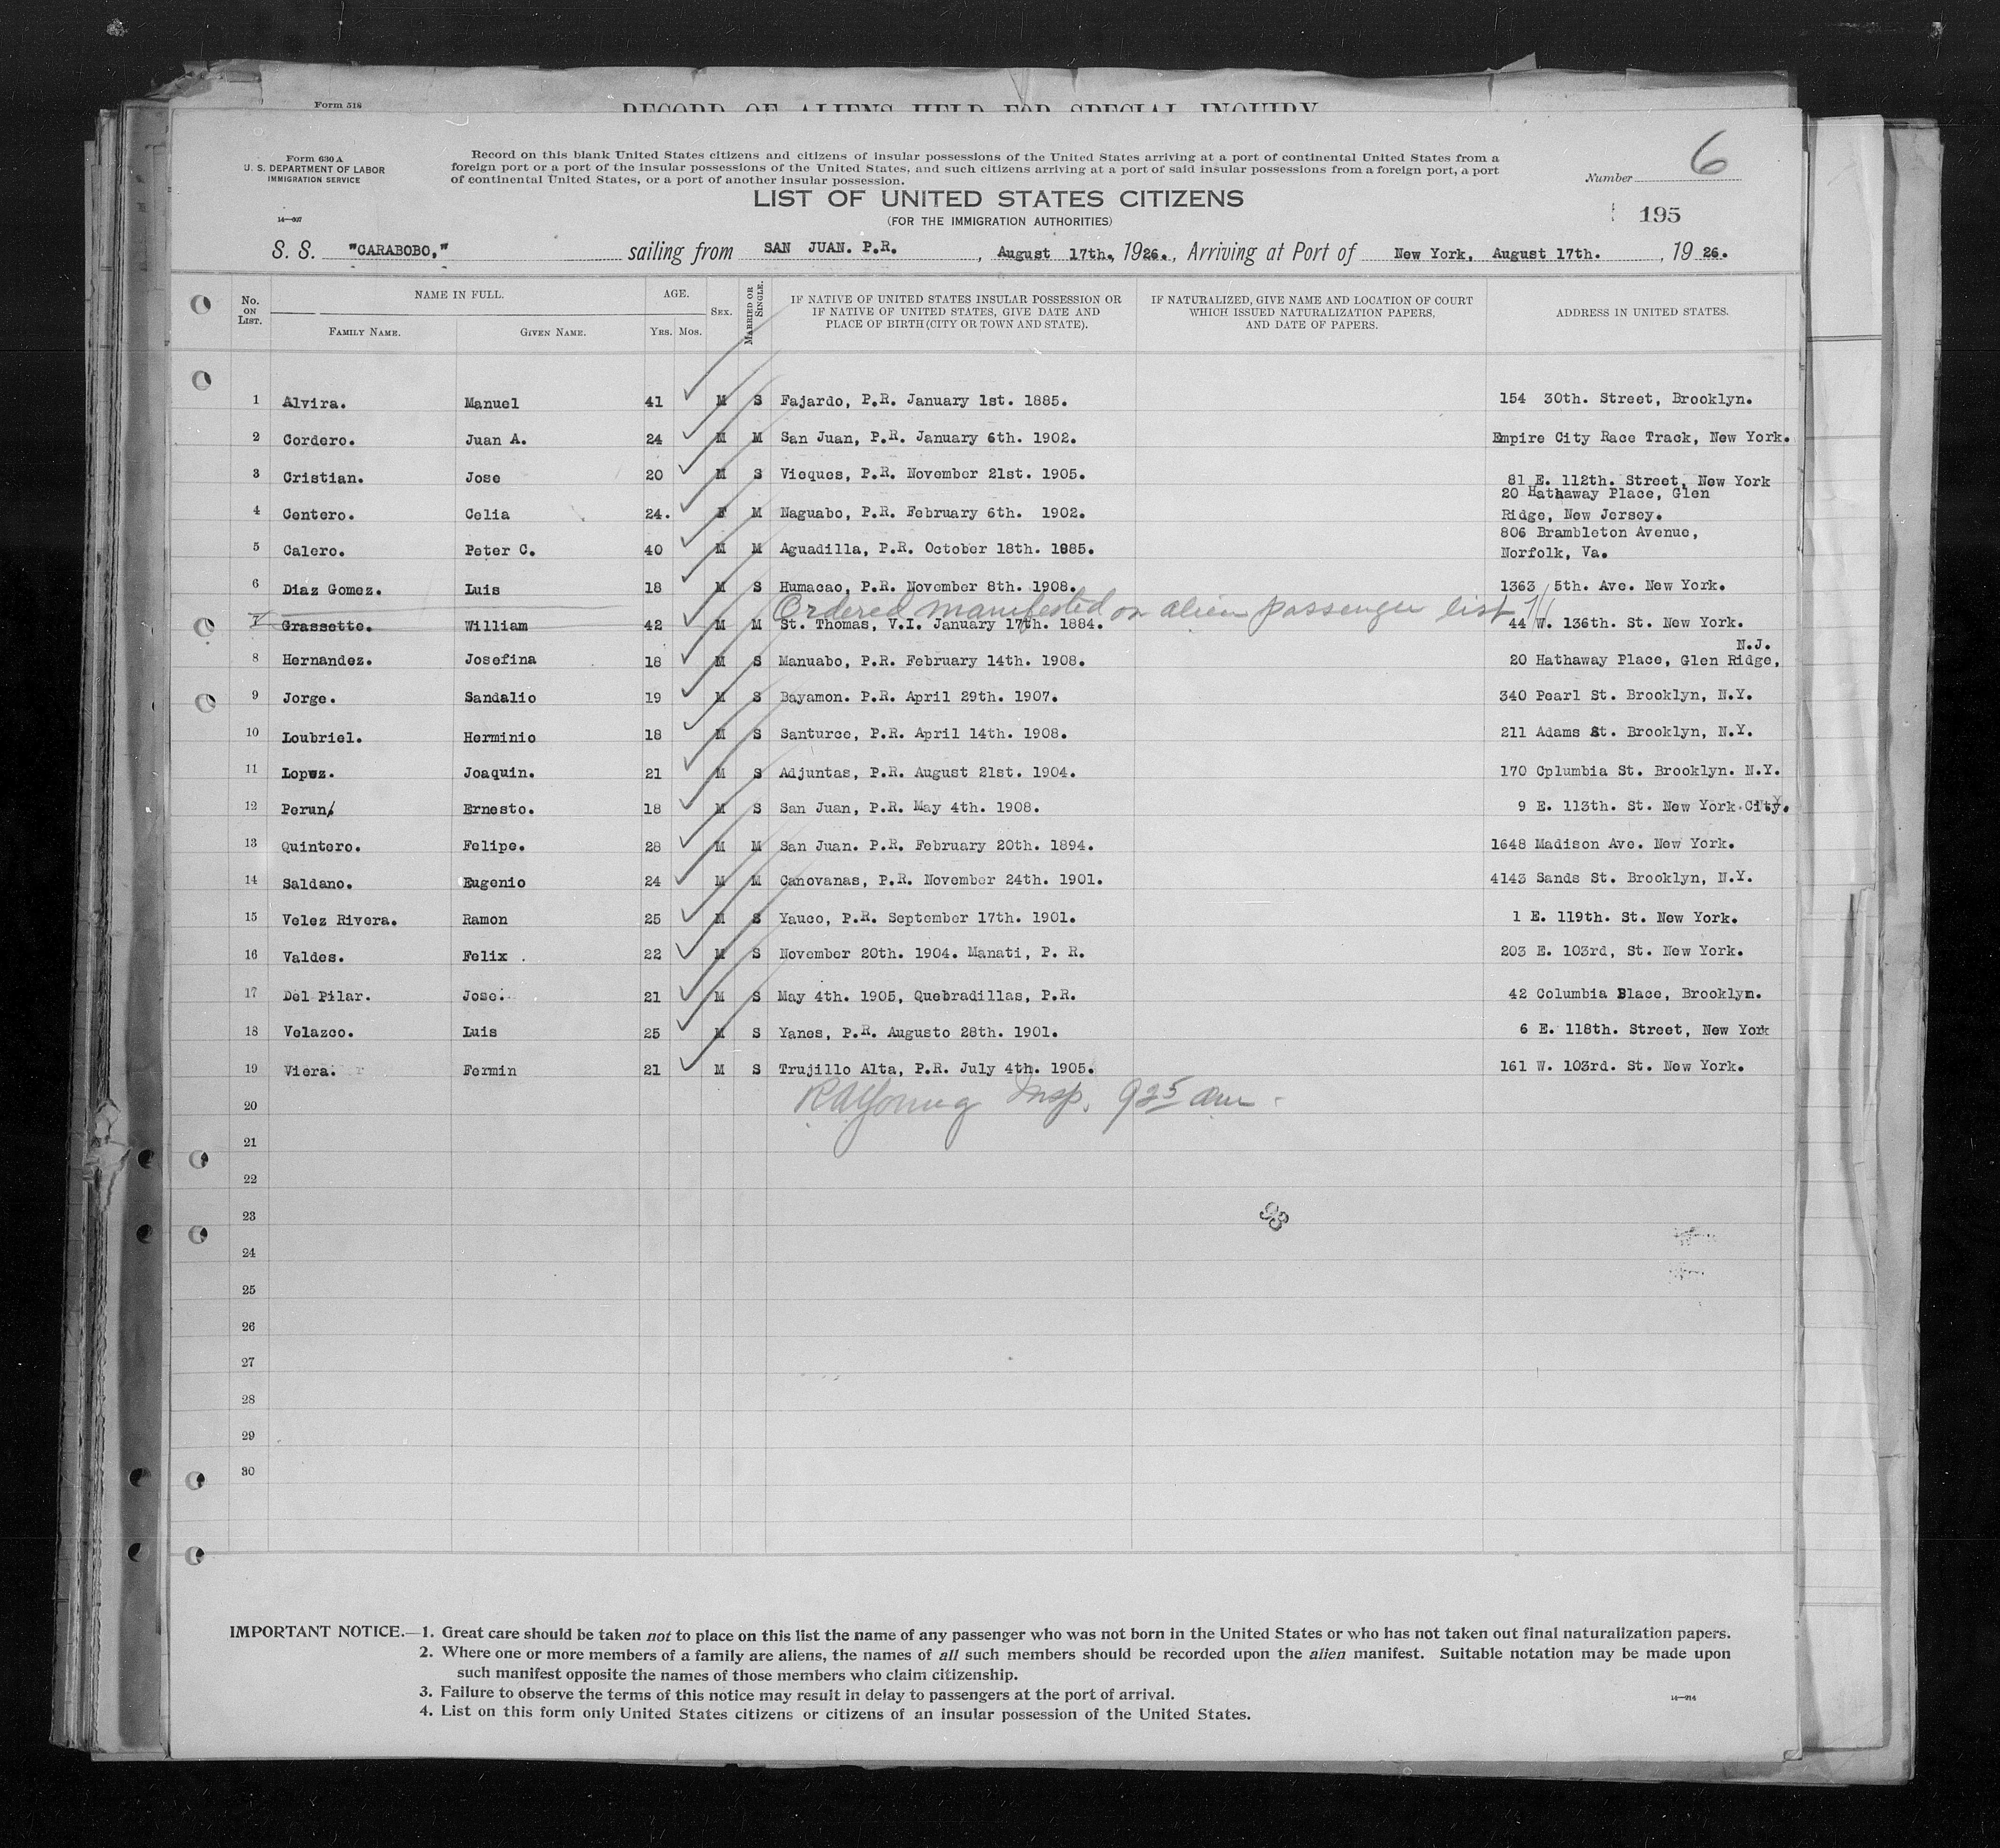 Form 518
RECORD OF ALIENS HELD FOR SPECIAL INQUIRY
Form 630 A
U. S. DEPARTMENT OF LABOR
IMMIGRATION SERVICE
14—607
Record on this blank United States citizens and citizens of insular possessions of the United States arriving at a port of continental United States from a
foreign port or a port of the insular possessions of the United States, and such citizens arriving at a port of said insular possessions from a foreign port, a port
of continental United States, or a port of another insular possession.
Number 6
LIST OF UNITED STATES CITIZENS
(FOR THE IMMIGRATION AUTHORITIES)
195
S. S. "CARABOBO," sailing from SAN JUAN. P.R. , August 17th., 1926., Arriving at Port of New York, August 17th. , 1926.
No. ON LIST. NAME IN FULL. FAMILY NAME. GIVEN NAME. AGE. YRS. MOS. SEX. MARRIED OR SINGLE. IF NATIVE OF UNITED STATES INSULAR POSSESSION OR IF NATIVE OF UNITED STATES, GIVE DATE AND PLACE OF BIRTH (CITY OR TOWN AND STATE). IF NATURALIZED, GIVE NAME AND LOCATION OF COURT WHICH ISSUED NATURALIZATION PAPERS, AND DATE OF PAPERS. ADDRESS IN UNITED STATES.
1 Alvira. Manuel 41 M S Fajardo, P.R. January 1st. 1885. 154 30th. Street, Brooklyn.
2 Cordero. Juan A. 24 M M San Juan, P.R. January 6th. 1902. Empire City Race Track, New York.
3 Cristian. Jose 20 M S Vieques, P.R. November 21st. 1905. 81 E. 112th. Street, New York
4 Centero. Celia 24. F M Naguabo, P.R. February 6th. 1902. 20 Hathaway Place, Glen
Ridge, New Jersey.
5 Calero. Peter C. 40 M M Aguadilla, P.R. October 18th. 1885. 806 Brambleton Avenue,
Norfolk, Va.
6 Diaz Gomez. Luis 18 M S Humacao, P.R. November 8th. 1908. 1363 5th. Ave. New York.
Ordered manifested on alien passenger list
7 Grassette. William 42 M M St. Thomas, V.I. January 17th. 1884. 44 W. 136th. St. New York.
N.J.
8 Hernandez. Josefina 18 M S Manuabo, P.R. February 14th. 1908. 20 Hathaway Place, Glen Ridge,
9 Jorge. Sandalio 19 M S Bayamon. P.R. April 29th. 1907. 340 Pearl St. Brooklyn, N.Y.
10 Loubriel. Herminio 18 M S Santurce, P.R. April 14th. 1908. 211 Adams St. Brooklyn, N.Y.
11 Lopez. Joaquin. 21 M S Adjuntas, P.R. August 21st. 1904. 170 Cplumbia St. Brooklyn. N.Y.
12 Perun Ernesto. 18 M S San Juan, P.R. May 4th. 1908. 9 E. 113th. St. New York City.
13 Quintero. Felipe. 28 M M San Juan. P.R. February 20th. 1894. 1648 Madison Ave. New York.
14 Saldano. Eugenio 24 M M Canovanas, P.R. November 24th. 1901. 4143 Sands St. Brooklyn, N.Y.
15 Velez Rivera. Ramon 25 M S Yauco, P.R. September 17th. 1901. 1 E. 119th. St. New York.
16 Valdes. Felix . 22 M S November 20th. 1904. Manati, P. R. 203 E. 103rd, St. New York.
17 Del Pilar. Jose. 21 M S May 4th. 1905, Quebradillas, P.R. 42 Columbia Blace, Brooklyn.
18 Velazco. Luis 25 M S Yanes, P.R. Augusto 28th. 1901. 6 E. 118th. Street, New York
19 Viera. Fermin 21 M S Trujillo Alta, P.R. July 4th. 1905. 161 W. 103rd. St. New York.
20 RAYoung Insp. 9 25 am
21
22
23 93
24
25
26
27
28
29
30
IMPORTANT NOTICE.—1. Great care should be taken not to place on this list the name of any passenger who was not born in the United States or who has not taken out final naturalization papers.
2. Where one or more members of a family are aliens, the names of all such members should be recorded upon the alien manifest. Suitable notation may be made upon
such manifest opposite the names of those members who claim citizenship.
3. Failure to observe the terms of this notice may result in delay to passengers at the port of arrival.
4. List on this form only United States citizens or citizens of an insular possession of the United States.
14—914